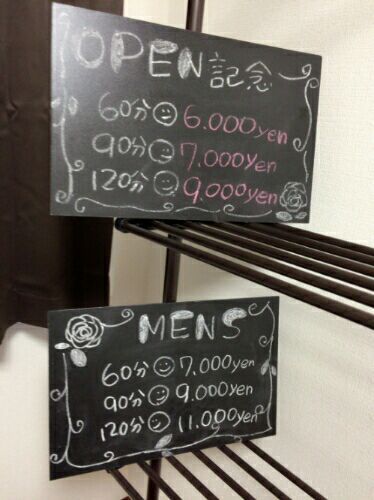 OPEN記念
60分 6.000yen
90分 7.000yen
120分 9.000yen
MENS
60分 7.000yen
90分 9.000yen
120分 11.000yen